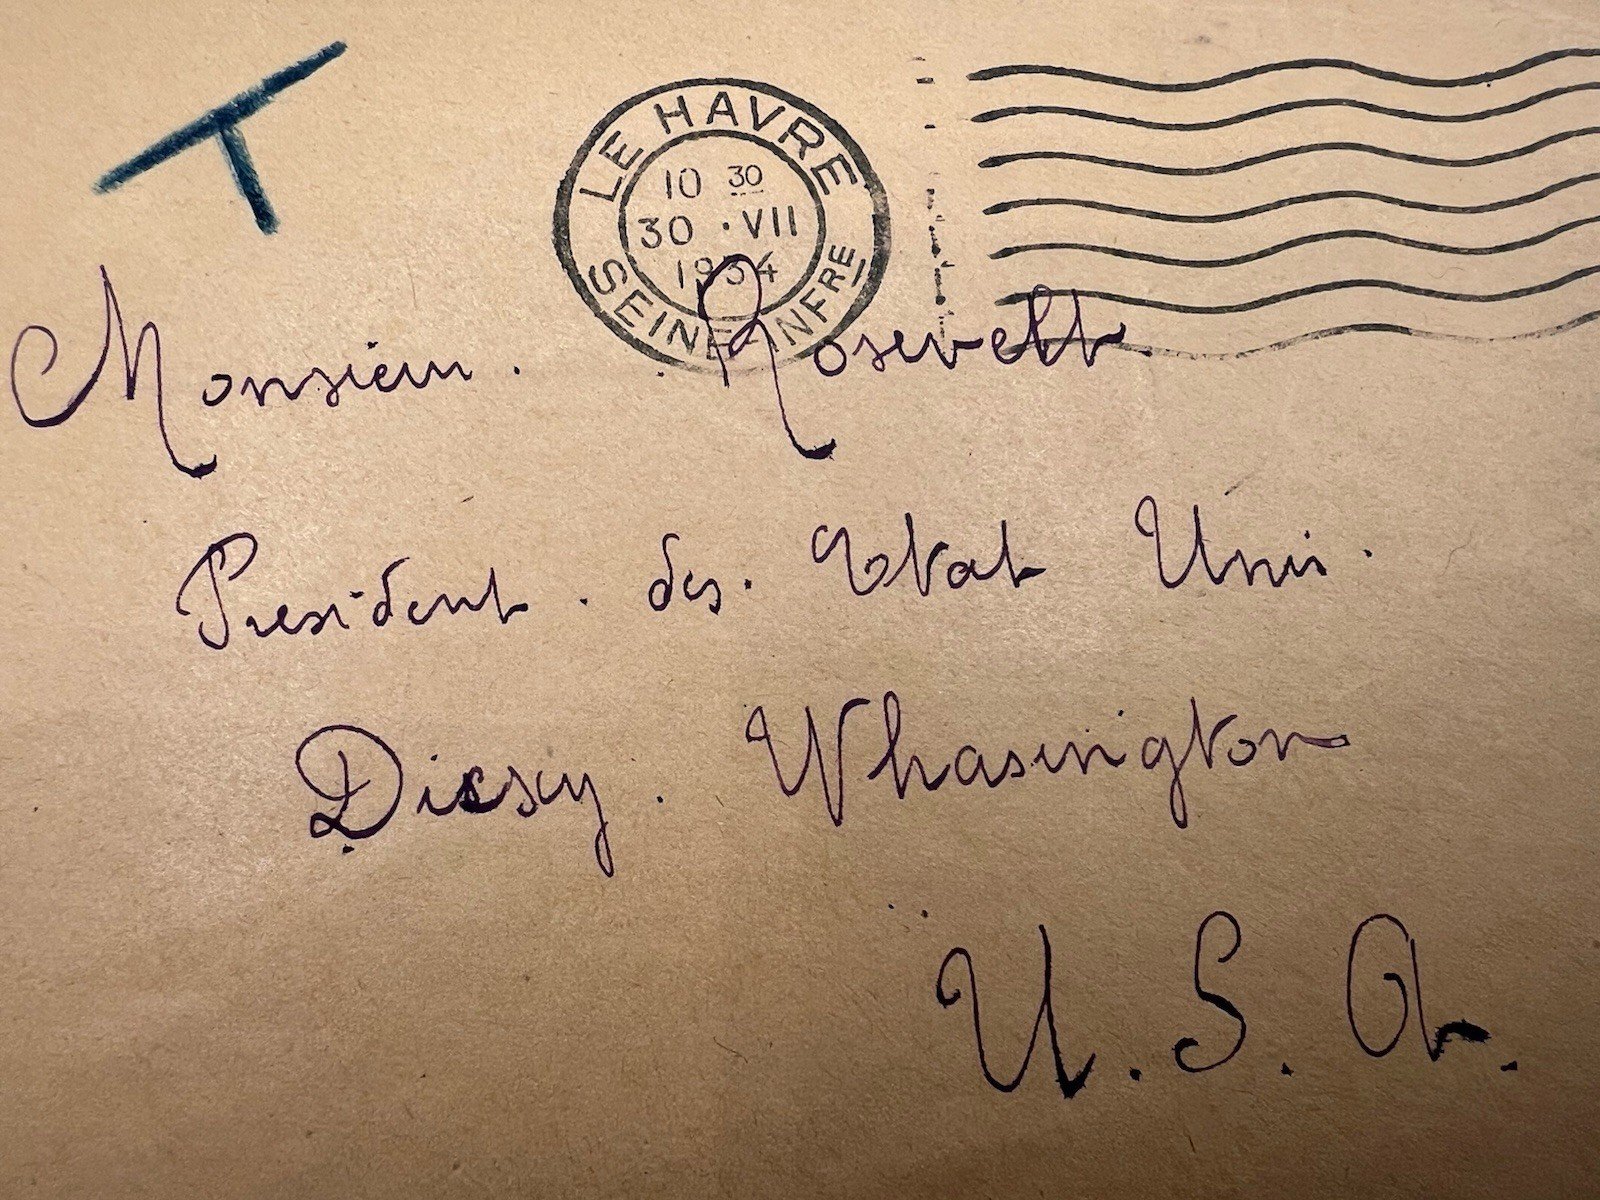 T
LE HAVRE
10 30
30 · VII
1934
SEINE INFRE
Monsieur. . Rosevelt.
President. des. Etat Unis.
Dicsxy. Whasington
U.S.A.